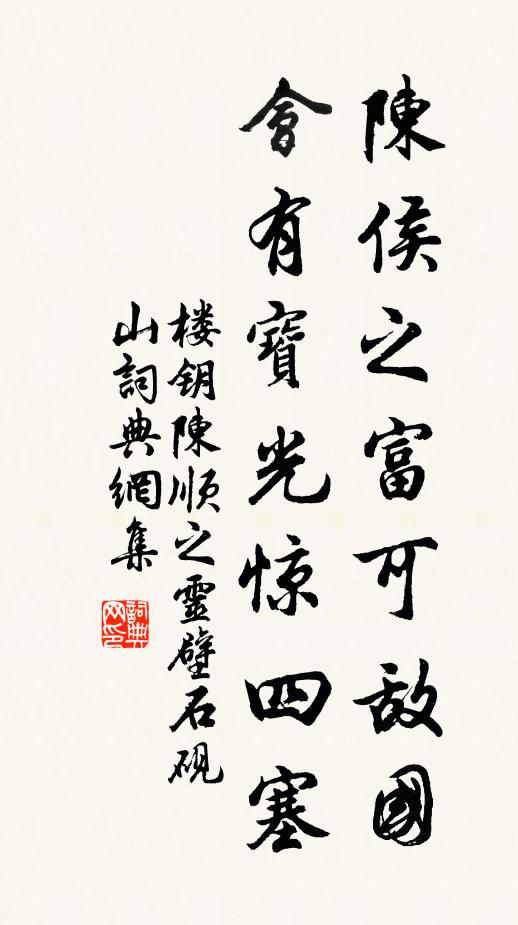 陳侯之富可敌國
會有寶光惊四塞
楼钥陳順之靈壁石砚
山詞典網集
詞典网印